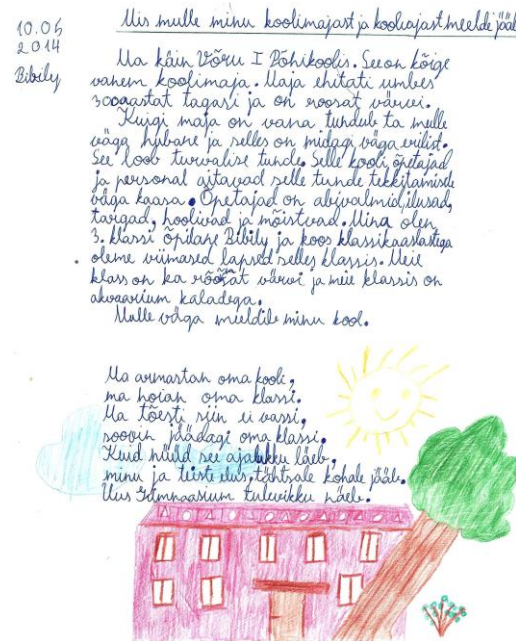 10.05
2014
Bibily
Mis mulle minu koolimajast ja kooliajast meelde jääb
Ma käin Võru I Põhikoolis. See on kõige
vanem koolimaja. Maja ehitati umbes
300aastat tagasi ja on roosat värvi.
Kuigi maja on vana tundub ta mulle
väga hubane ja selles on midagi väga erilist.
See loob turvalise tunde. Selle kooli õpetajad
ja personal aitavad selle tunde tekkitamisele
väga kaasa. Õpetajad on abivalmid, ilusad,
targad, hoolivad ja mõistvad. Mina olen
3. klassi õpilane Bibily ja koos klassikaaslastega
oleme viimased lapsed selles klassis. Meie
klass on ka roosat värvi ja meie klassis on
akvaarium kaladega.
Mulle väga meeldib minu kool.
Ma armastan oma kooli,
ma hoian oma klassi.
Ma tõesti siin ei vassi,
soovin jäädagi oma klassi.
Kuid nüüd see ajalukku läeb,
minu ja teiste elus, tähtsale kohale jääb.
Uus Gümnaasium tulevikku näeb.